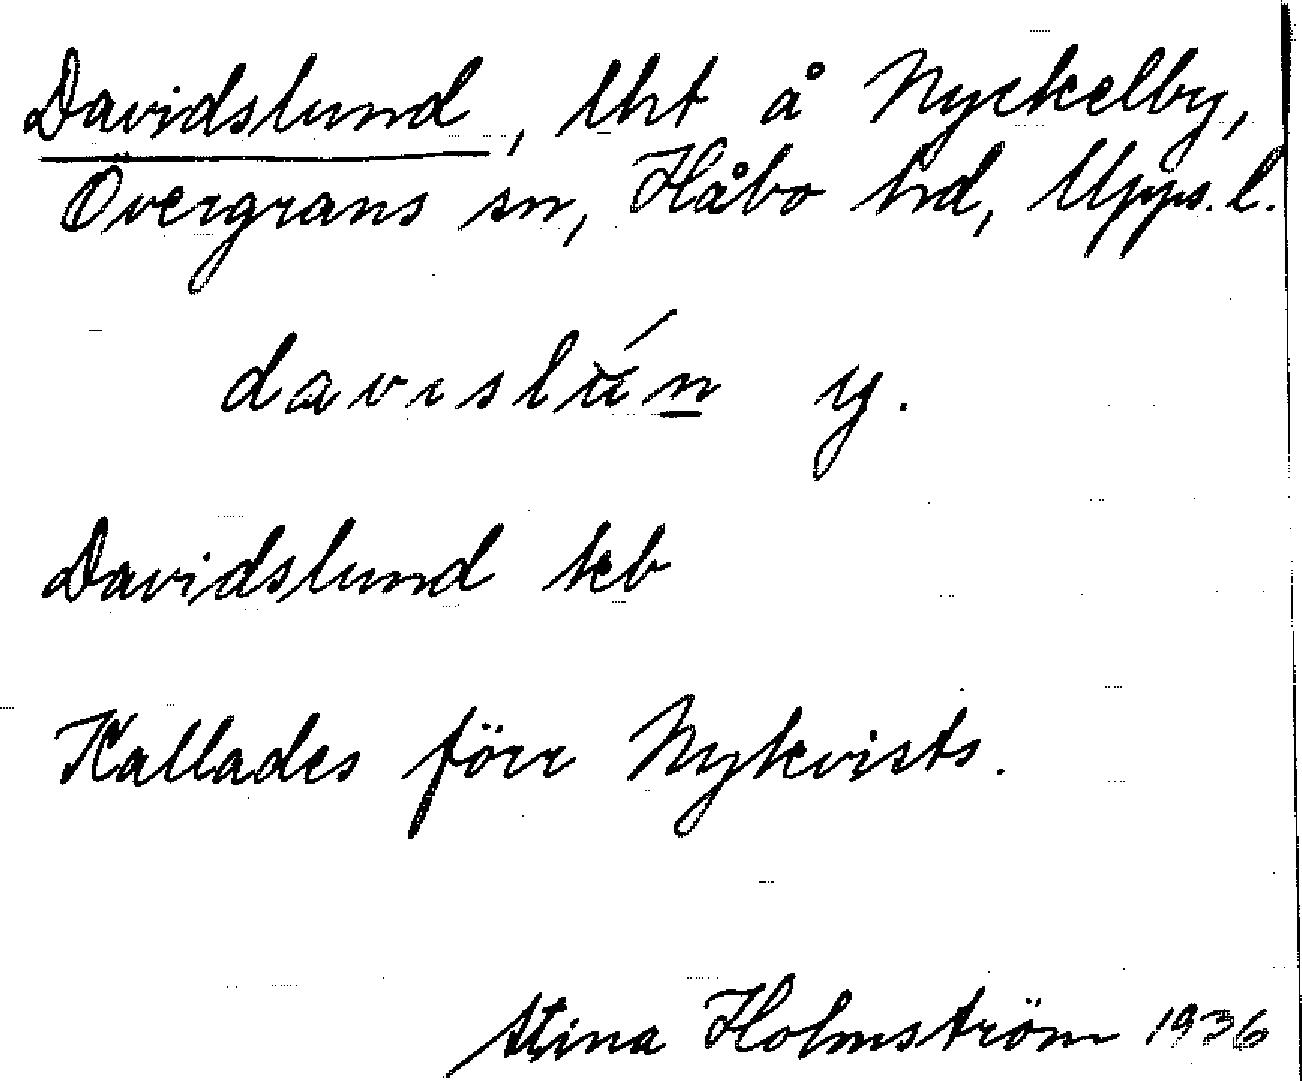 Davidslund, lht å Nyckelby,
Övergrans sn, Håbo hd, Upps. l.
davislún y.
Davidslund keb
Kallades förr Nykvists.
Stina Holmström 1936